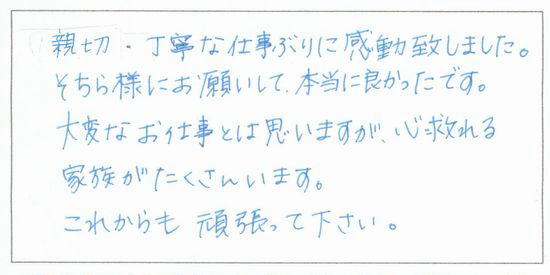 親切・丁寧な仕事ぶりに感動致しました。
そちら様にお願いして、本当に良かったです。
大変なお仕事とは思いますが、心救れる
家族がたくさんいます。
これからも 頑張って下さい。